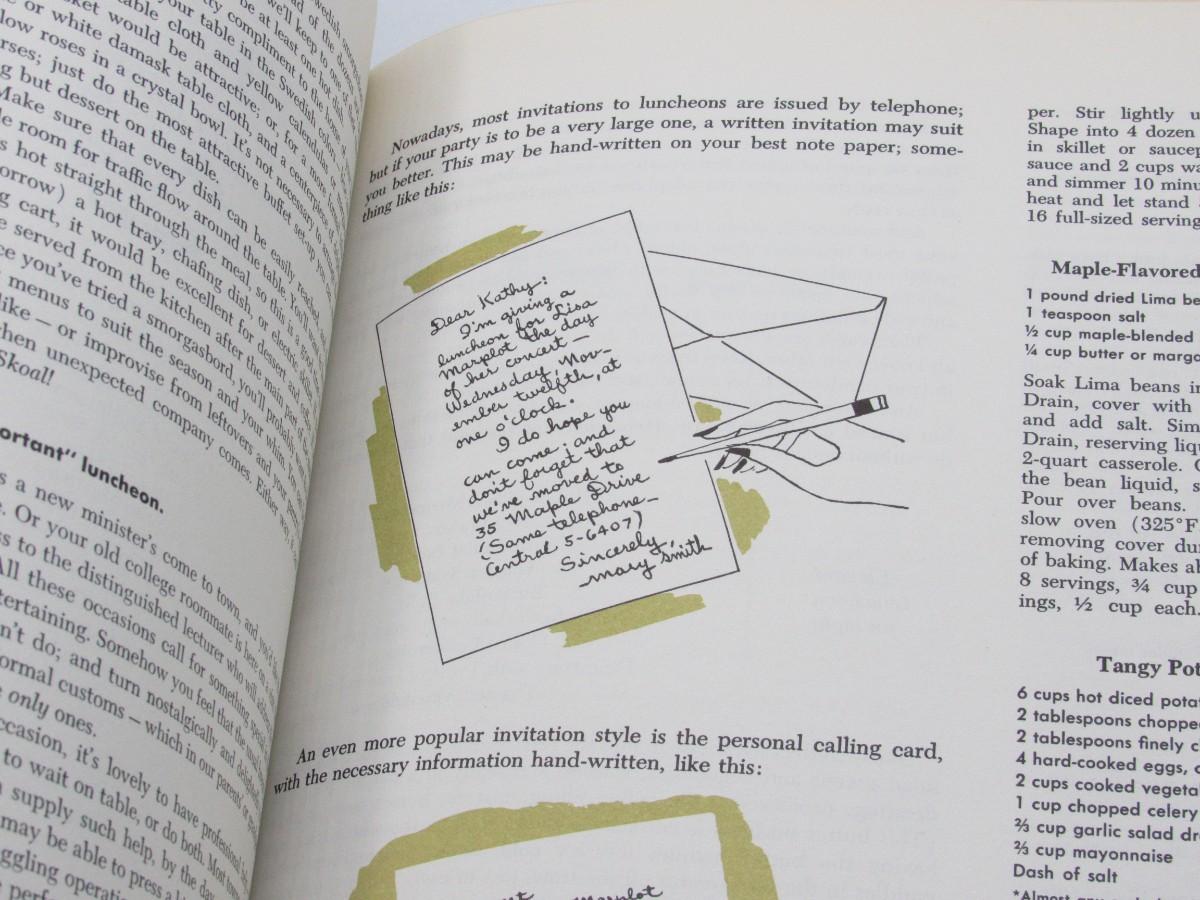 wedish
ad of the
we'll keep to one of
be at least one hot dish
tty compliment to the home
your table in the Swedish colors
table cloth and yellow calendulas or
ket would be attractive; or, for a more formal
e or white damask table cloth, and a centerpiece of
low roses in a crystal bowl. It's not necessary to arrange
rses; just do the most attractive buffet set-up you
g but dessert on the table.
Make sure that every dish can be easily reached
le room for traffic flow around the table. You'll
s hot straight through the meal, so this is a good
orrow) a hot tray, chafing dish, or electric skillet
g cart, it would be excellent for dessert and
e served from the kitchen after the main part of
ce you've tried a smorgasbord, you'll probably
menus to suit the season and your whim. You can
like — or improvise from leftovers and your
when unexpected company comes. Either way
Skoal!
ortant" luncheon.
s a new minister's come to town, and you'd
e. Or your old college roommate is here on a
ss to the distinguished lecturer who will address
All these occasions call for something special
tertaining. Somehow you feel that the usual
n't do; and turn nostalgically and delightedly
ormal customs — which in our parents' or
e only ones.
ccasion, it's lovely to have professional help
to wait on table, or do both. Most towns
n supply such help, by the day
may be able to press a
ggling operati
perf
Nowadays, most invitations to luncheons are issued by telephone;
but if your party is to be a very large one, a written invitation may suit
you better. This may be hand-written on your best note paper; some-
thing like this:
Dear Kathy:
I'm giving a
luncheon for Lisa
Marplot the day
of her concert —
Wednesday, Nov-
ember twelfth, at
one o'clock.
I do hope you
can come; and
don't forget that
we've moved to
35 Maple Drive
(Same telephone —
Central 5-6407)
Sincerely,
Mary Smith
An even more popular invitation style is the personal calling card,
with the necessary information hand-written, like this:
Marplot
per. Stir lightly u
Shape into 4 dozen
in skillet or saucep
sauce and 2 cups wa
and simmer 10 minu
heat and let stand
16 full-sized serving
Maple-Flavored
1 pound dried Lima be
1 teaspoon salt
½ cup maple-blended
¼ cup butter or marga
Soak Lima beans in
Drain, cover with
and add salt. Sim
Drain, reserving liqu
2-quart casserole. C
the bean liquid, s
Pour over beans.
slow oven (325°F
removing cover dur
of baking. Makes ab
8 servings, ¾ cup
ings, ½ cup each.
Tangy Pot
6 cups hot diced potat
2 tablespoons chopped
2 tablespoons finely c
4 hard-cooked eggs, c
2 cups cooked vegetab
1 cup chopped celery
⅔ cup garlic salad dr
⅔ cup mayonnaise
Dash of salt
*Almost any